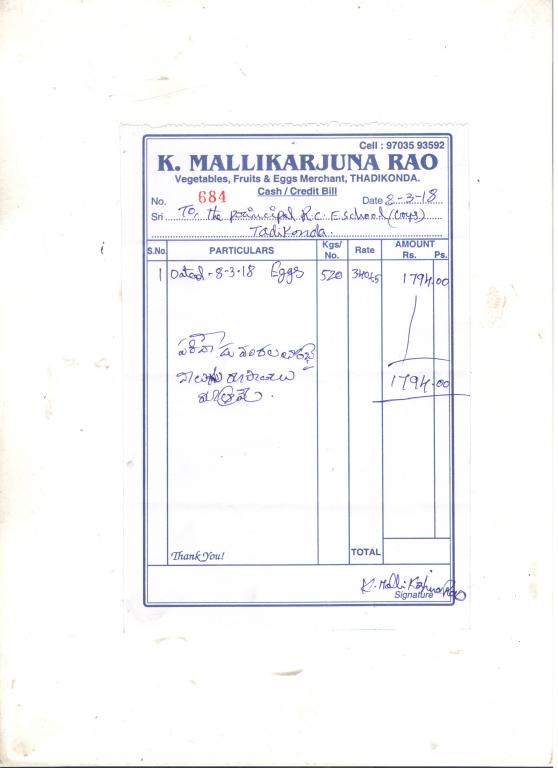 Cell : 97035 93592
K. MALLIKARJUNA RAO
Vegetables, Fruits & Eggs Merchant, THADIKONDA.
Cash / Credit Bill
No. 684 Date 8-3-18
Sri To, the principal R.C. E. school (Boys)
Tadikonda.
S.No. PARTICULARS Kgs/ No. Rate AMOUNT Rs. Ps.
1 Dated - 8-3-18 Eggs 520 1794.00
1794.00
Thank You! TOTAL
K. Malli Karjuna Rao
Signature